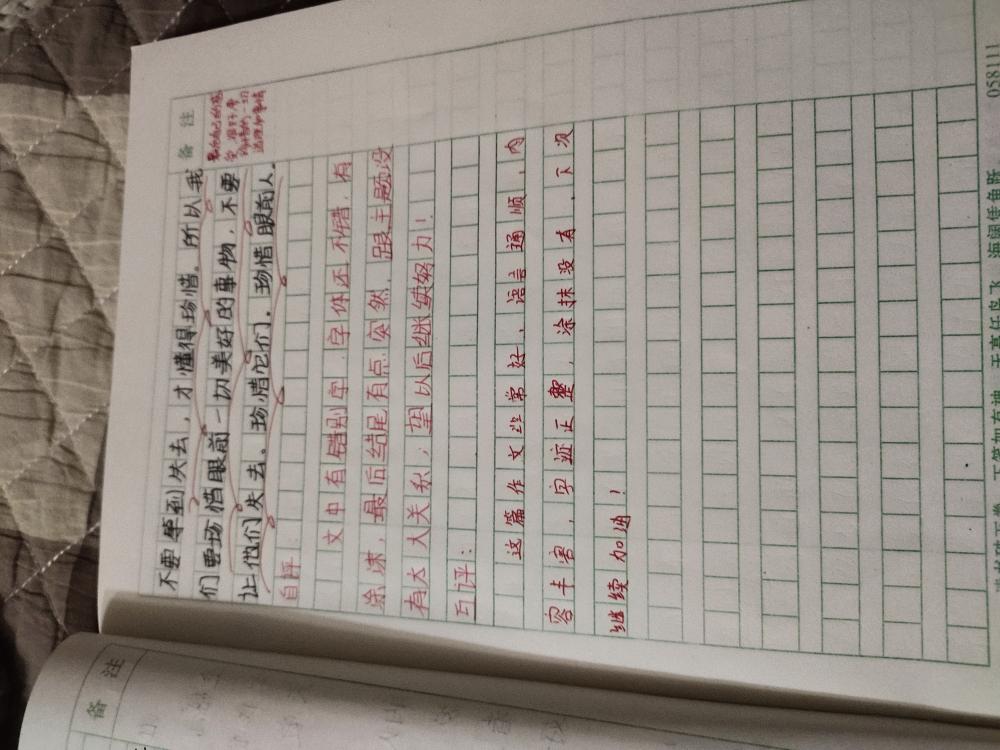 备注
不要等到失去，才懂得珍惜。所以我
们要珍惜眼前一切美好的事物，不要
让他们失去。珍惜它们，珍惜眼前人。
自评：
文中有错别字，字体还不错，有
涂抹，最后结尾有点突然，跟主题没
有太大关系，望以后继续努力！
互评：
这篇作文非常好，语言通顺，内
容丰富，字迹正整，涂抹没有，下次
继续加油！
058111
备注